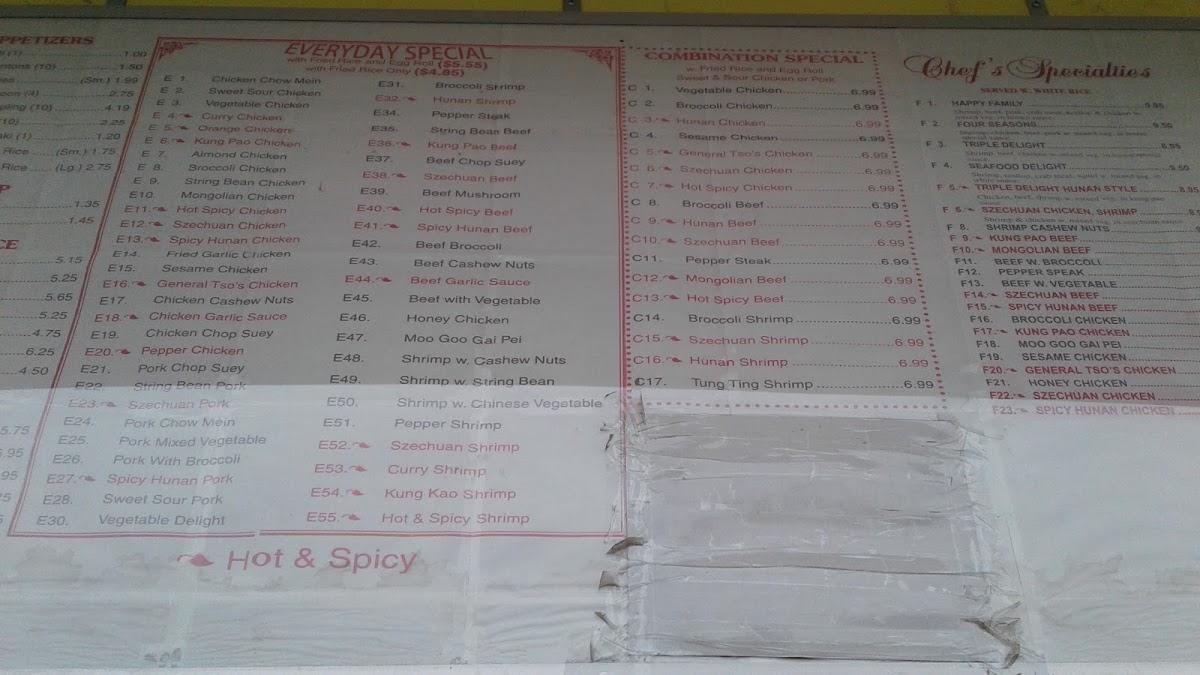 PPETIZERS
(1) 1.00
ntons (10) 1.50
(Sm.) 1.99
(4) 2.75
(10) 4.19
(10) 2.25
(1) 1.20
Rice (Sm.) 1.75
Rice (Lg.) 2.75
P
1.35
1.45
CE
5.15
5.25
5.65
5.25
4.75
6.25
4.50
5.75
EVERYDAY SPECIAL
with Fried Rice and Egg Roll ($5.55)
with Fried Rice Only ($4.85)
E 1. Chicken Chow Mein
E 2. Sweet Sour Chicken
E 3. Vegetable Chicken
E 4. Curry Chicken
E 5. Orange Chicken
E 6. Kung Pao Chicken
E 7. Almond Chicken
E 8. Broccoli Chicken
E 9. String Bean Chicken
E10. Mongolian Chicken
E11. Hot Spicy Chicken
E12. Szechuan Chicken
E13. Spicy Hunan Chicken
E14. Fried Garlic Chicken
E15. Sesame Chicken
E16. General Tso's Chicken
E17. Chicken Cashew Nuts
E18. Chicken Garlic Sauce
E19. Chicken Chop Suey
E20. Pepper Chicken
E21. Pork Chop Suey
E22. String Bean Pork
E23. Szechuan Pork
E24. Pork Chow Mein
E25. Pork Mixed Vegetable
E26. Pork With Broccoli
E27. Spicy Hunan Pork
E28. Sweet Sour Pork
E30. Vegetable Delight
E31. Broccoli Shrimp
E32. Hunan Shrimp
E34. Pepper Steak
E35. String Bean Beef
E36. Kung Pao Beef
E37. Beef Chop Suey
E38. Szechuan Beef
E39. Beef Mushroom
E40. Hot Spicy Beef
E41. Spicy Hunan Beef
E42. Beef Broccoli
E43. Beef Cashew Nuts
E44. Beef Garlic Sauce
E45. Beef with Vegetable
E46. Honey Chicken
E47. Moo Goo Gai Pei
E48. Shrimp w. Cashew Nuts
E49. Shrimp w. String Bean
E50. Shrimp w. Chinese Vegetable
E51. Pepper Shrimp
E52. Szechuan Shrimp
E53. Curry Shrimp
E54. Kung Kao Shrimp
E55. Hot & Spicy Shrimp
Hot & Spicy
COMBINATION SPECIAL
w. Fried Rice and Egg Roll
Sweet & Sour Chicken or Pork
C 1. Vegetable Chicken 6.99
C 2. Broccoli Chicken 6.99
C 3. Hunan Chicken 6.99
C 4. Sesame Chicken 6.99
C 5. General Tso's Chicken 6.99
C 6. Szechuan Chicken 6.99
C 7. Hot Spicy Chicken 6.99
C 8. Broccoli Beef 6.99
C 9. Hunan Beef 6.99
C10. Szechuan Beef 6.99
C11. Pepper Steak 6.99
C12. Mongolian Beef 6.99
C13. Hot Spicy Beef 6.99
C14. Broccoli Shrimp 6.99
C15. Szechuan Shrimp 6.99
C16. Hunan Shrimp 6.99
C17. Tung Ting Shrimp 6.99
Chef's Specialties
SERVED W. WHITE RICE
F 1. HAPPY FAMILY 9.95
F 2. FOUR SEASONS 9.50
F 3. TRIPLE DELIGHT 8.95
F 4. SEAFOOD DELIGHT 9.50
F 5. TRIPLE DELIGHT HUNAN STYLE 8.95
F 6. SZECHUAN CHICKEN, SHRIMP
F 8. SHRIMP CASHEW NUTS
F 9. KUNG PAO BEEF
F10. MONGOLIAN BEEF
F11. BEEF W. BROCCOLI
F12. PEPPER SPEAK
F13. BEEF W. VEGETABLE
F14. SZECHUAN BEEF
F15. SPICY HUNAN BEEF
F16. BROCCOLI CHICKEN
F17. KUNG PAO CHICKEN
F18. MOO GOO GAI PEI
F19. SESAME CHICKEN
F20. GENERAL TSO'S CHICKEN
F21. HONEY CHICKEN
F22. SZECHUAN CHICKEN
F23. SPICY HUNAN CHICKEN